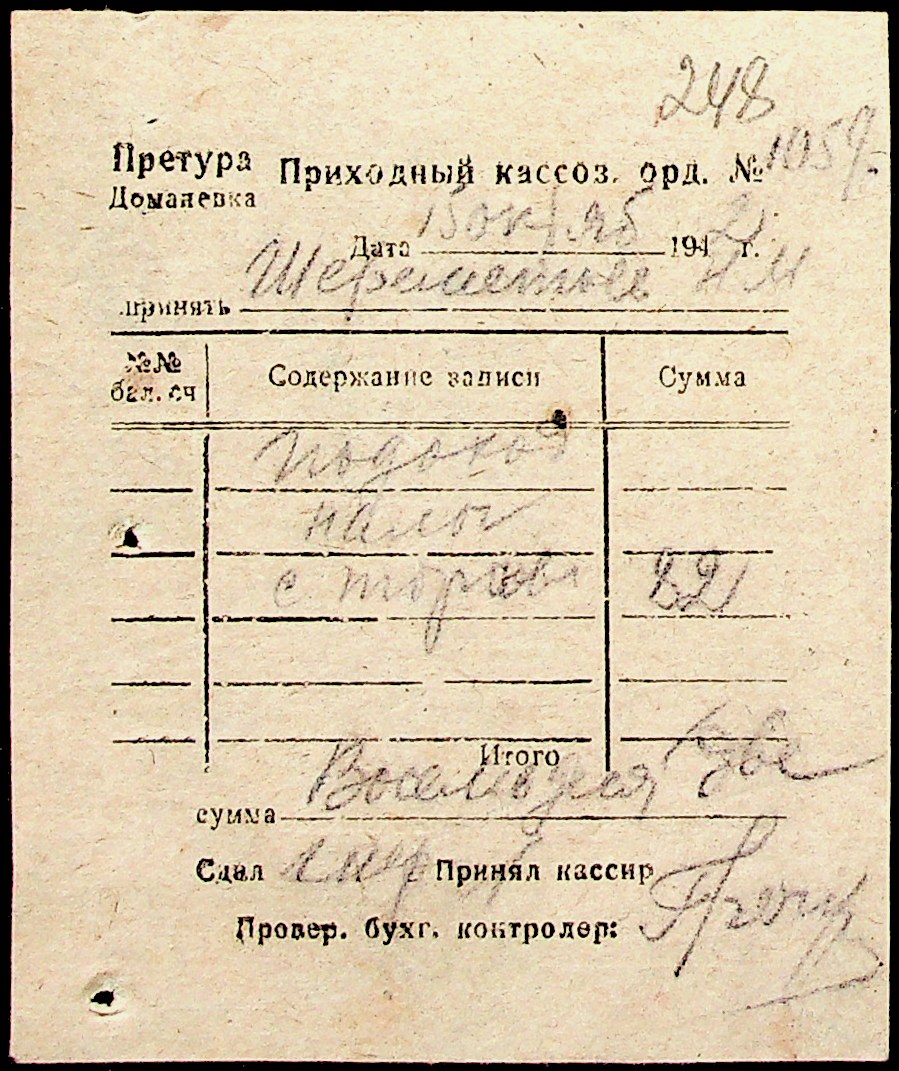 248
Претура Приходный кассов. орд. № 1059
Доманевка
Дата 15 октяб 1942 г.
принять Шереметьев Н М
№№ бал. сч Содержание записи Сумма
подоход
налог
с торгов 82
Итого
сумма Восемдесят две
Сдал Принял кассир
Провер. бухг. контролер: